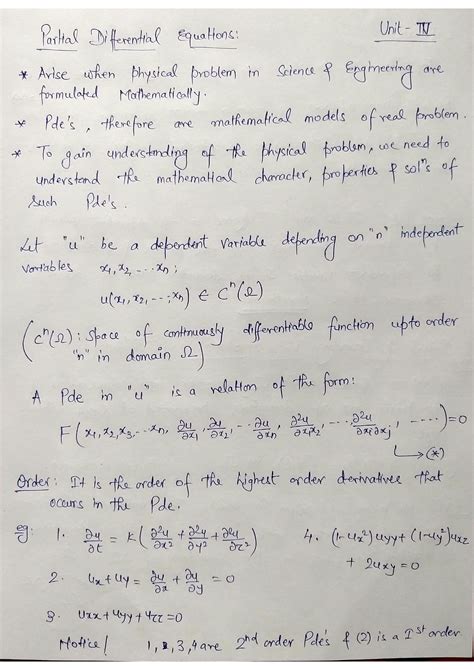 Partial Differential Equations:
Unit - IV
* Arise when physical problem in Science & Engineering are
formulated Mathematically.
* Pde's, therefore are mathematical models of real problem.
* To gain understanding of the physical problem, we need to
understand the mathematical character, properties & solⁿs of
such Pde's.
Let "u" be a dependent variable depending on "n" independent
variables x₁,x₂, ...xₙ;
u(x₁,x₂, ...,xₙ) ∈ Cⁿ(Ω)
(Cⁿ(Ω): Space of continuously differentiable function upto order
"n" in domain Ω)
A Pde in "u" is a relation of the form:
F(x₁,x₂,x₃...xₙ, ∂u/∂x₁, ∂u/∂x₂, ... ∂u/∂xₙ, ∂²u/∂x₁x₂, ... ∂²u/∂xᵢ∂xⱼ, ....)=0
↳(*)
Order: It is the order of the highest order derivative that
occurs in the Pde.
eg: 1. ∂u/∂t = K(∂²u/∂x² + ∂²u/∂y² + ∂²u/∂z²)
4. (1-ux²)uyy+(1-uy²)uxz
+ 2uxy = 0
2. ux+uy = ∂u/∂x + ∂u/∂y = 0
3. uxx+uyy+uzz=0
Notice! 1, 3,4 are 2nd order Pde's & (2) is a Ist order